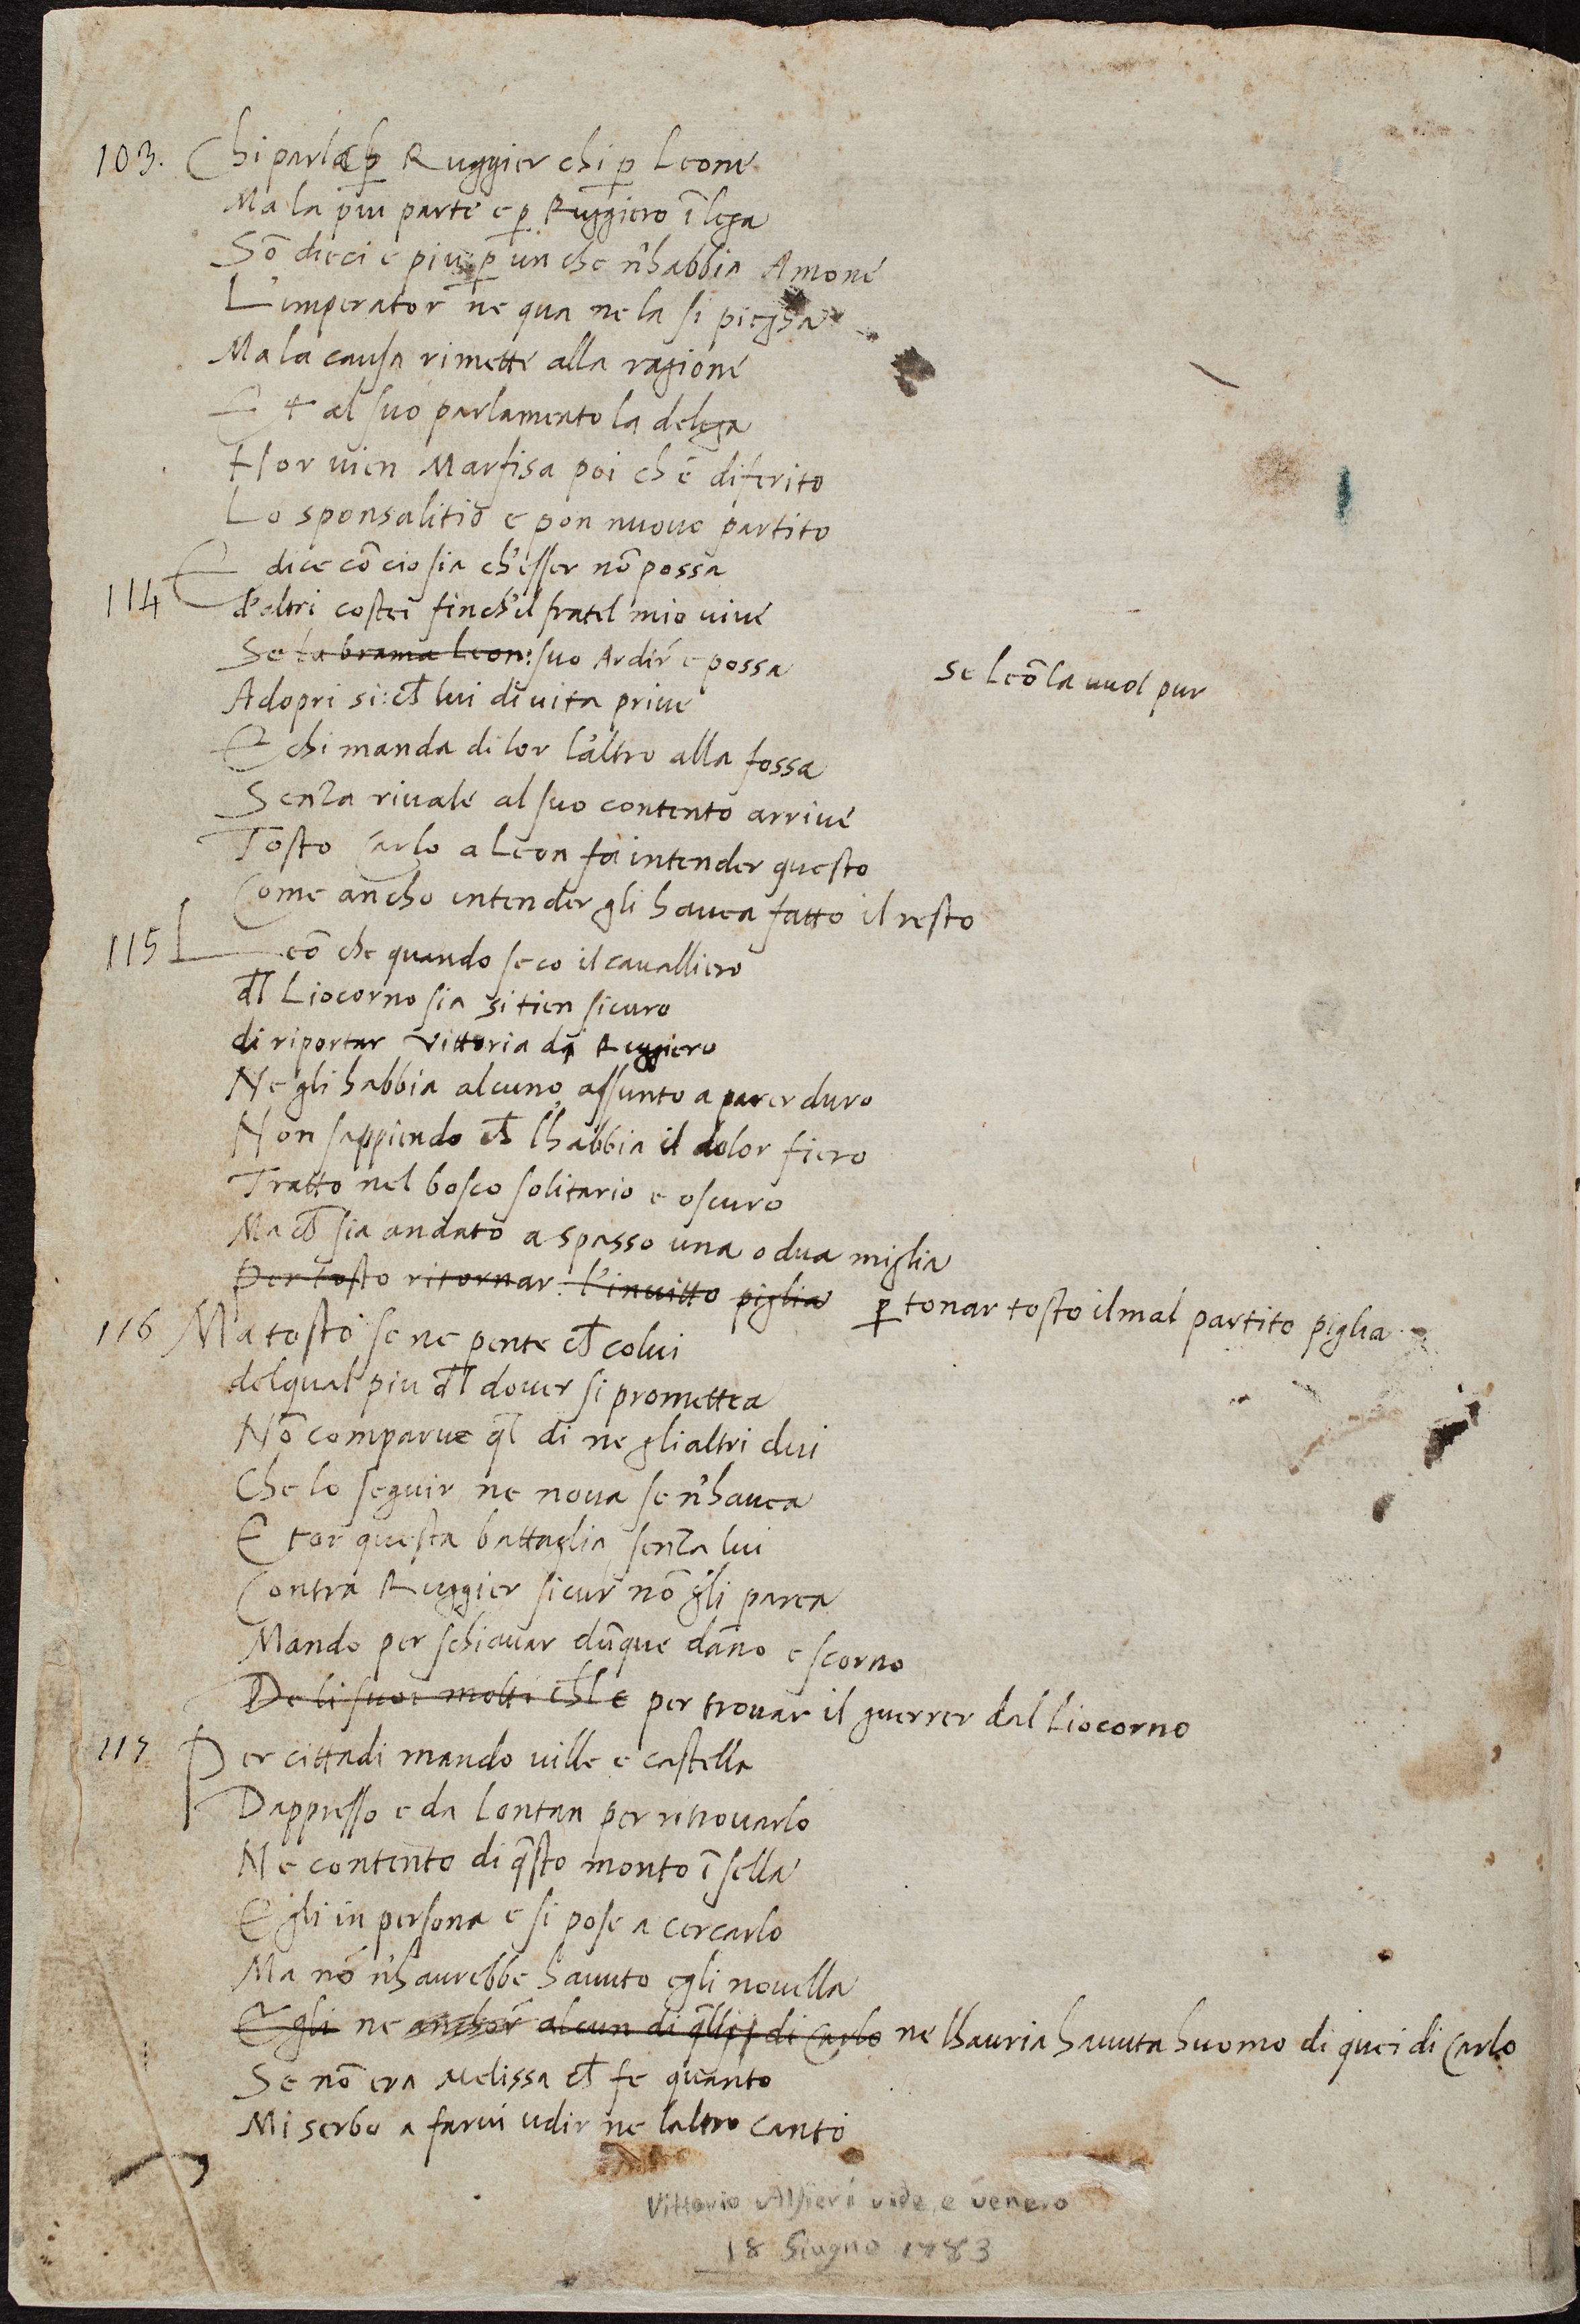 103. Chi parla ꝑ Ruggier chi ꝑ Leone
Ma la piu parte e ꝑ Ruggiero ī lega
Sō dieci e piu ꝑ un che n'habbia Amone
L'imperator ne qua ne la si piega
Ma la causa rimette alla ragione
Et al suo parlamento la delega
Hor uien Marfisa poi ch'è diferito
Lo sponsalitio e pon nuouo partito
114 E dice cōcio sia ch'esser nō possa
d'altri costei finch'il fratel mio uiue
Se la brama Leon: suo Ardir e possa Se Leō la uuol pur
Adopri si: ch̄ lui di uita priue
E chi manda di lor l'altro alla fossa
Senza riuale al suo contento arriue
Tosto Carlo a Leon fa intender questo
Come ancho intender gli hauea fatto il resto
115 Leō che quando seco il caualliero
d̄l Liocorno sia si tien sicuro
di riportar Vittoria di Ruggiero
Ne gli habbia alcuno assunto a parer duro
Non sappiendo ch̄ l'habbia il dolor fiero
Tratto nel bosco solitario e oscuro
Ma ch̄ sia andato a spasso una o dua miglia
Per tosto ritornar: l'inuitto piglia ꝑ tonar tosto il mal partito piglia
116 Ma tosto se ne pente ch̄ colui
del qual piu d̄l douer si promettea
Nō comparue q̄l di ne gli altri dui
Che lo seguir ne noua se n'hauea
E tor questa battaglia senza lui
Contra Ruggier sicur nō gli parea
Mando per schiuar dūque dāno e scorno
De li suoi molti per trouar il guerrer dal Liocorno
117 Per cittadi mando uille e castella
Dappresso e da lontan per ritrouarlo
Ne contento di q̄sto monto ī sella
Egli in persona e si pose a cercarlo
Ma nō n'haurebbe hauuto egli nouella
Egli ne anchor alcun di q̄lli di Carlo ne l'hauria hauuta huomo di quei di Carlo
Se nō era Melissa ch̄ fe quanto
Mi serbo a farui udir ne l'altro canto
Vittorio Alfieri vide, e venerò
18 Giugno 1783